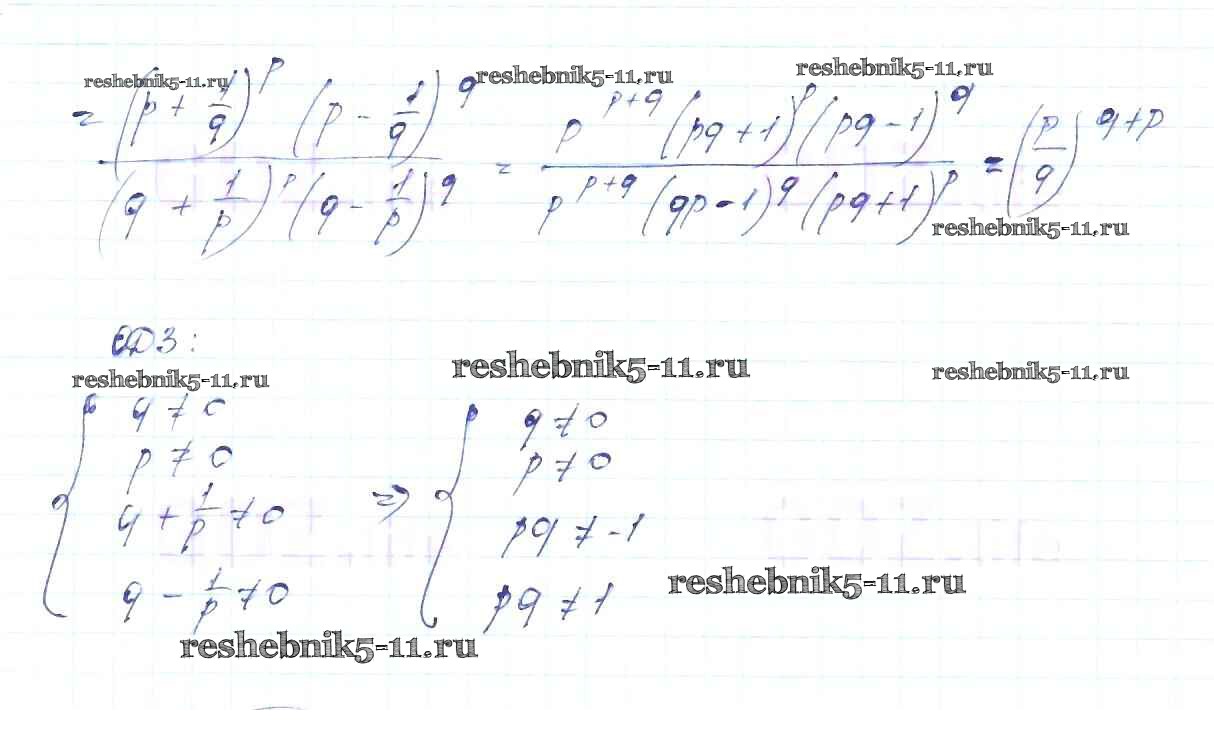 reshebnik5-11.ru reshebnik5-11.ru reshebnik5-11.ru
= \frac{(p + \frac{1}{q})^p (p - \frac{1}{q})^q}{(q + \frac{1}{p})^p (q - \frac{1}{p})^q} = \frac{p^{p+q} (pq+1)^p (pq-1)^q}{p^{p+q} (qp-1)^q (pq+1)^p} = (\frac{p}{q})^{q+p}
reshebnik5-11.ru
ОДЗ:
reshebnik5-11.ru reshebnik5-11.ru reshebnik5-11.ru
{ q ≠ 0 { q ≠ 0
p ≠ 0 p ≠ 0
q + \frac{1}{p} ≠ 0 => pq ≠ -1
q - \frac{1}{p} ≠ 0 pq ≠ 1
reshebnik5-11.ru
reshebnik5-11.ru